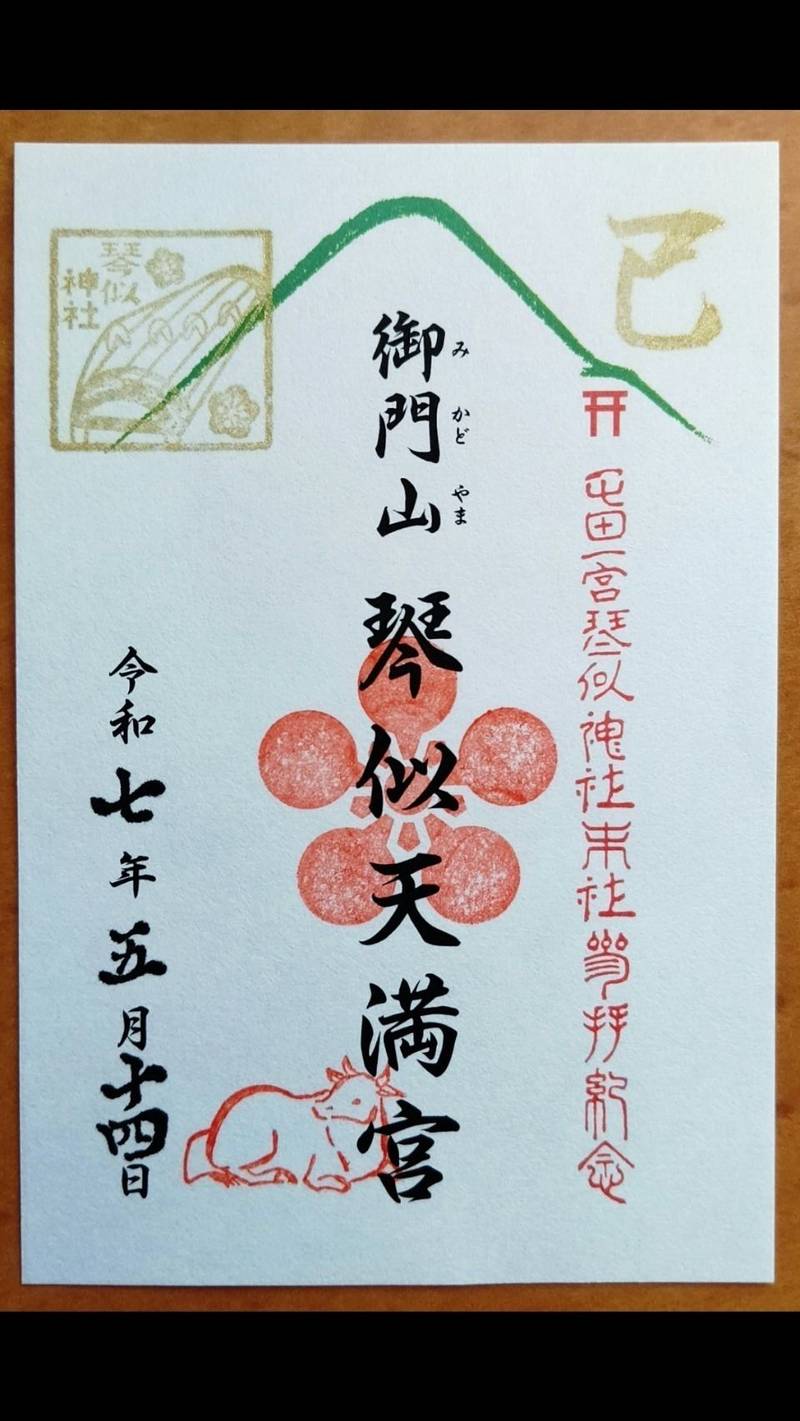 巳
屯田一宮琴似神社末社参拝紀念
御門山
みかどやま
琴似天満宮
令和七年五月十四日
琴似
神社